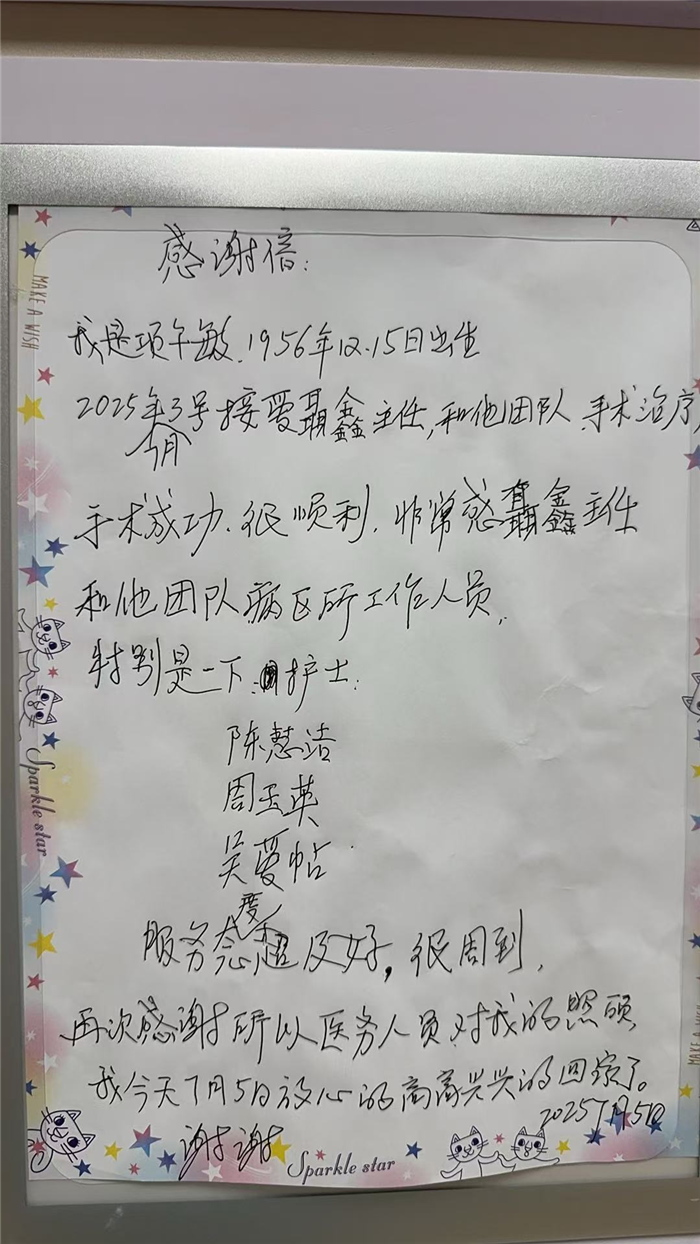 感谢信:
MAKE A WISH
我是项午敏、1956年12.15日出生
2025年7月3号接受聂鑫主任,和他团队、手术治疗,
手术成功、很顺利、非常感聂鑫主任
和他团队病区所工作人员,
特别是一下、护士:
陈慧洁
周玉英
吴爱帖
Sparkle star
服务态度超及好,很周到,
再次感谢所以医务人员对我的照顾,
我今天7月5日放心的高高兴兴的回家了。
2025 7月5日
谢谢
Sparkle star
MAKE A